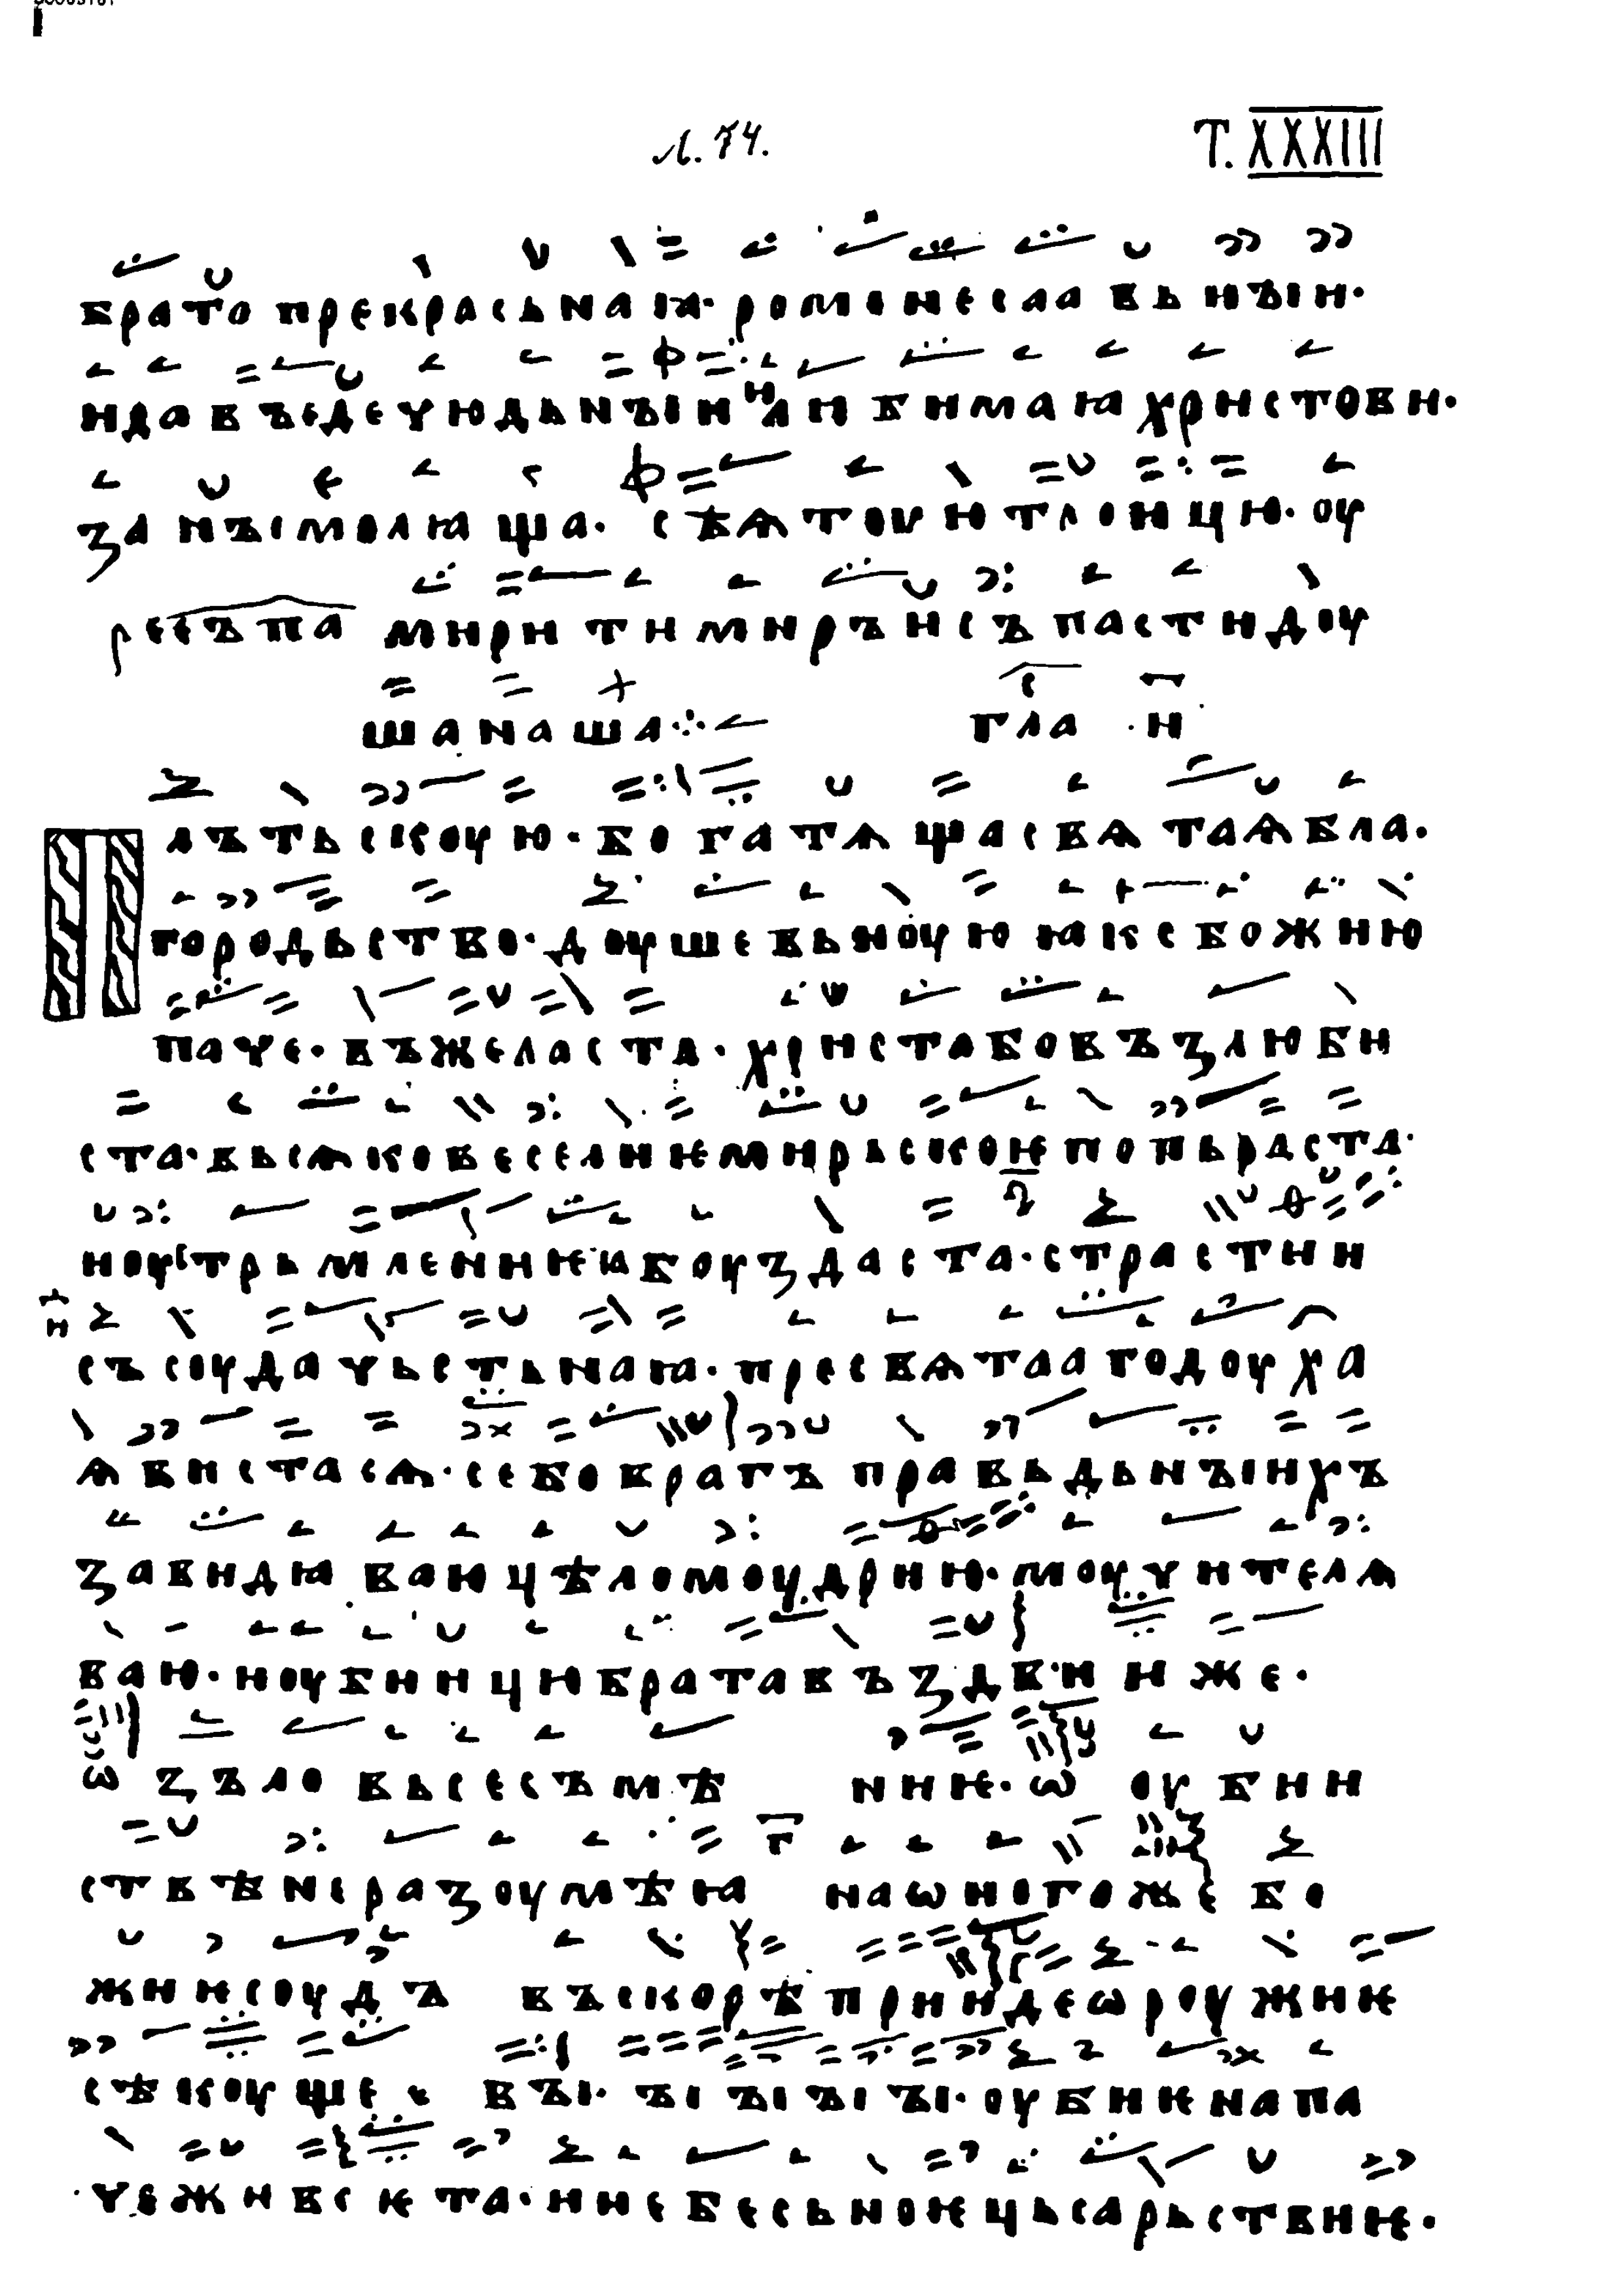 л. 74. Т. XXXIII
брато прекрасьнаꙗ· романеслав вьнъıи·
и дав въıдѣ чюдьнъıи и любимаꙗ христови·
за нъı молꙗща· свѣѧтою и тлоицю· оу
мирити миръ и съпасти доу
ша наша· гла н
лътьскоую· богатѧща свѧтаѧ бла·
городьство· доушевьноую ꙗко божию
паче· въжеласта· христа бо възлюби
ста· вьсѧко веселиѥ мирьскоѥ попьраста·
и оустрьмлениꙗ боуздаста· страсти и
съсоуда чьстьнаꙗ· пресвѧтааго доуха
ѧвистасѧ· се бо врагъ правьдьнъıихъ
завидꙗ ваю цѣломоудрию· моучителѧ
ваю· и оубиицю брата въздвиже·
ѡ зъло вьсе съмѣ ниѥ· ѡ оубии
ствѣ не разоумѣꙗ на ѡного же бо
жии соудъ въскорѣ прииде ѡроужиѥ
сѣкоуще въı· ъı ъı ъı ъı· оубиѥна па
че живета· и небесьноѥ цьсарьствиѥ·